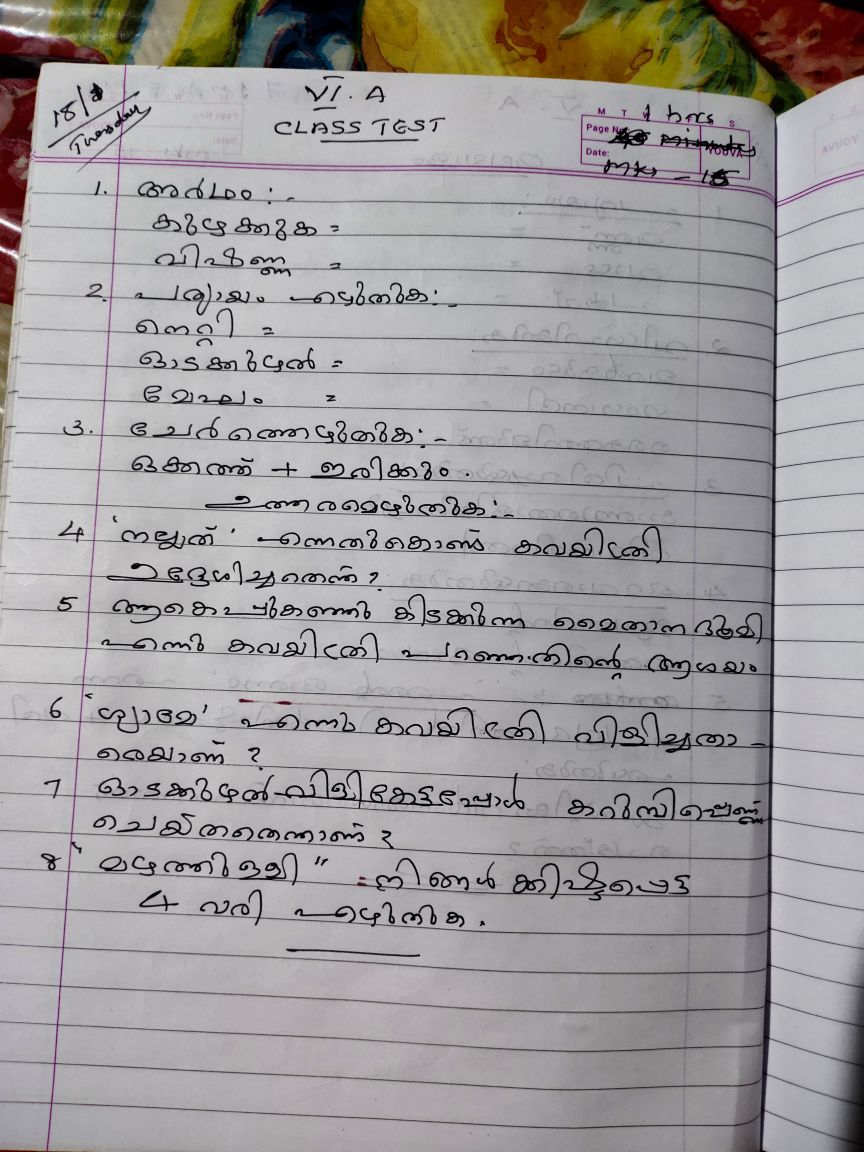 18/
Tuesday
VI. A
CLASS TEST
1 hrs
M T W S
Page No
YOUVA
Date:
Mks - 15
1. അർഥം :-
വിഷണ്ണ =
2. പര്യായം എഴുതുക:-
നെറ്റി =
ഓടക്കുഴൽ =
മേഘം =
3. ചേർത്തെഴുതുക:-
ഒക്കത്ത് + ഇരിക്കും.
ഉത്തരമെഴുതുക:-
4 'നല്ലത്' എന്നതുകൊണ്ട് കവയിത്രി
ഉദ്ദേശിച്ചതെന്ത്?
5 ആകെ കിടക്കുന്ന മൈതാനഭൂമി
എന്നു കവയിത്രി പറഞ്ഞതിന്റെ ആശയം
6 'ശ്യാമേ' എന്നു കവയിത്രി വിളിച്ചതാ-
രെയാണ് ?
7 ഓടക്കുഴൽവിളി കേട്ടപ്പോൾ കറുമ്പിപ്പെണ്ണ്
ചെയ്തതെന്താണ് ?
8 "മഴത്തുള്ളി" = നിങ്ങൾക്കിഷ്ടപ്പെട്ട
4 വരി എഴുതുക.